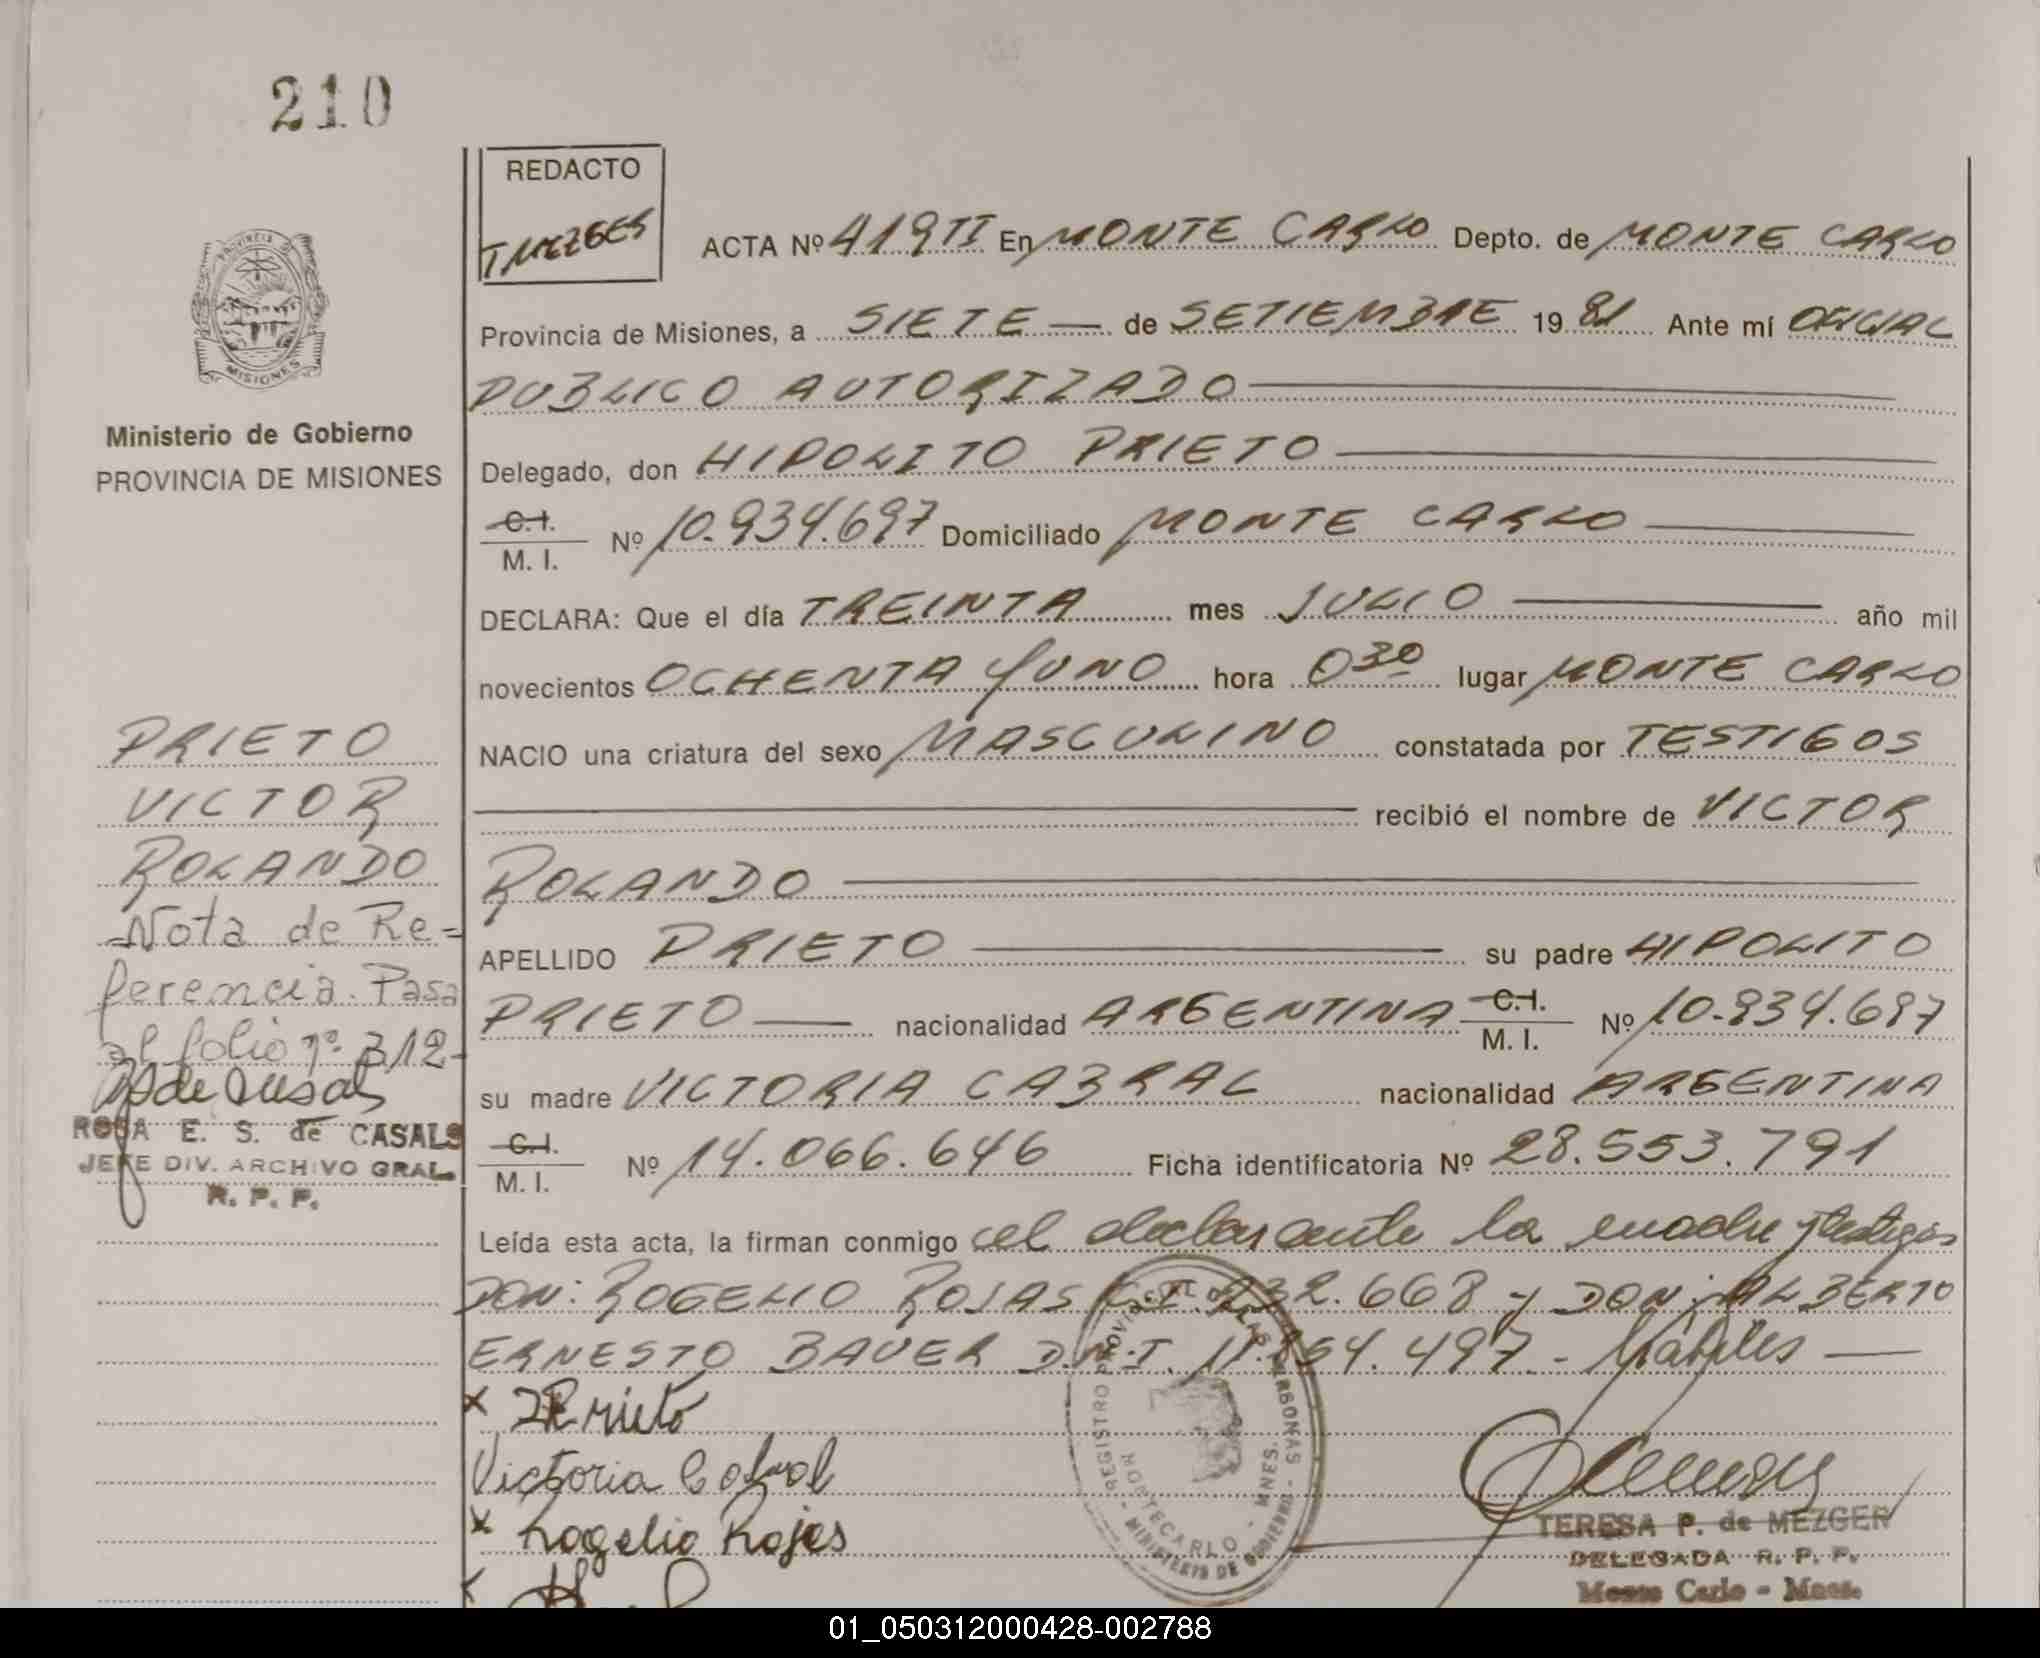 210
REDACTO
T MEZGER
ACTA Nº 419 TI En MONTE CARLO Depto. de MONTE CARLO
Provincia de Misiones, a SIETE — de SETIEMBRE 19 81 Ante mí OFICIAL
PUBLICO AUTORIZADO
Delegado, don HIPOLITO PRIETO
C.I. M. I. Nº 10.934.697 Domiciliado MONTE CARLO
DECLARA: Que el día TREINTA mes JULIO año mil
novecientos OCHENTA Y UNO hora 0 30 lugar MONTE CARLO
NACIO una criatura del sexo MASCULINO constatada por TESTIGOS
recibió el nombre de VICTOR
ROLANDO
APELLIDO PRIETO su padre HIPOLITO
PRIETO — nacionalidad ARGENTINA C.I. M. I. Nº 10.934.697
su madre VICTORIA CABRAL nacionalidad ARGENTINA
C.I. M. I. Nº 14.066.646 Ficha identificatoria Nº 28.553.791
Leída esta acta, la firman conmigo el declarante la madre y testigos
DON: ROGELIO ROJAS C.I. 232.668 y DON: ALBERTO
ERNESTO BAUER D.N.I. 11. 497 - hábiles —
x Prieto
Victoria Cabral
x Rogelio Rojas
x
PROVINCIA D MISIONES
Ministerio de Gobierno
PROVINCIA DE MISIONES
PRIETO
VICTOR
ROLANDO
-Nota de Re-
ferencia. Pasa
al folio nº 312-
ROSA E. S. de CASALS
JEFE DIV. ARCHIVO GRAL.
R. P. P.
REGISTRO PROVINCIAL DE LAS PERSONAS - MINISTERIO DE GOBIERNO -
MONTECARLO - MNES.
TERESA P. de MEZGER
DELEGADA R. P. P.
Monte Carlo - Mnes.
01_050312000428-002788